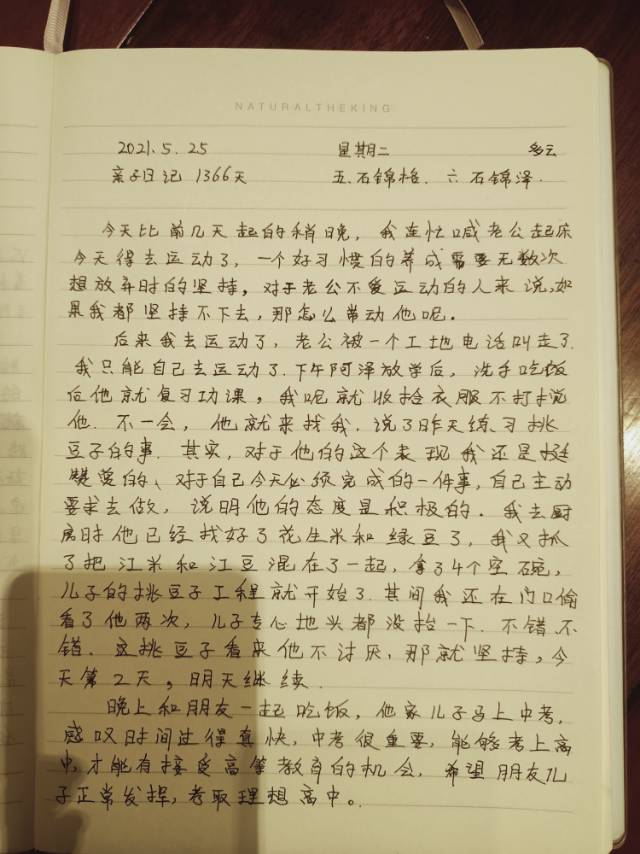 NATURALTHEKING
2021.5.25 星期二 多云
亲子日记 1366天 五.石锦格. 六石锦泽.
今天比前几天起的稍晚，我连忙喊老公起床
今天得去运动了，一个好习惯的养成需要无数次
想放弃时的坚持，对于老公不爱运动的人来说，如
果我都坚持不下去，那怎么带动他呢。
后来我去运动了，老公被一个工地电话叫走了.
我只能自己去运动了.下午阿泽放学后，洗手吃饭
后他就复习功课，我呢就收拾衣服不打扰
他.不一会，他就来找我.说了昨天练习挑
豆子的事.其实，对于他的这个表现我还是挺
赞赏的、对于自己今天必须完成的一件事，自己主动
要求去做，说明他的态度是积极的.我去厨
房时他已经找好了花生米和绿豆了，我又抓
了把江米和江豆混在了一起，拿了4个空碗，
儿子的挑豆子工程就开始了.其间我还在门口偷
看了他两次，儿子专心地头都没抬一下.不错.不
错.这挑豆子看来他不讨厌，那就坚持，今
天第2天，明天继续.
晚上和朋友一起吃饭，他家儿子马上中考，
感叹时间过得真快，中考很重要，能够考上高
中，才能有接受高等教育的机会，希望朋友儿
子正常发挥，考取理想高中。